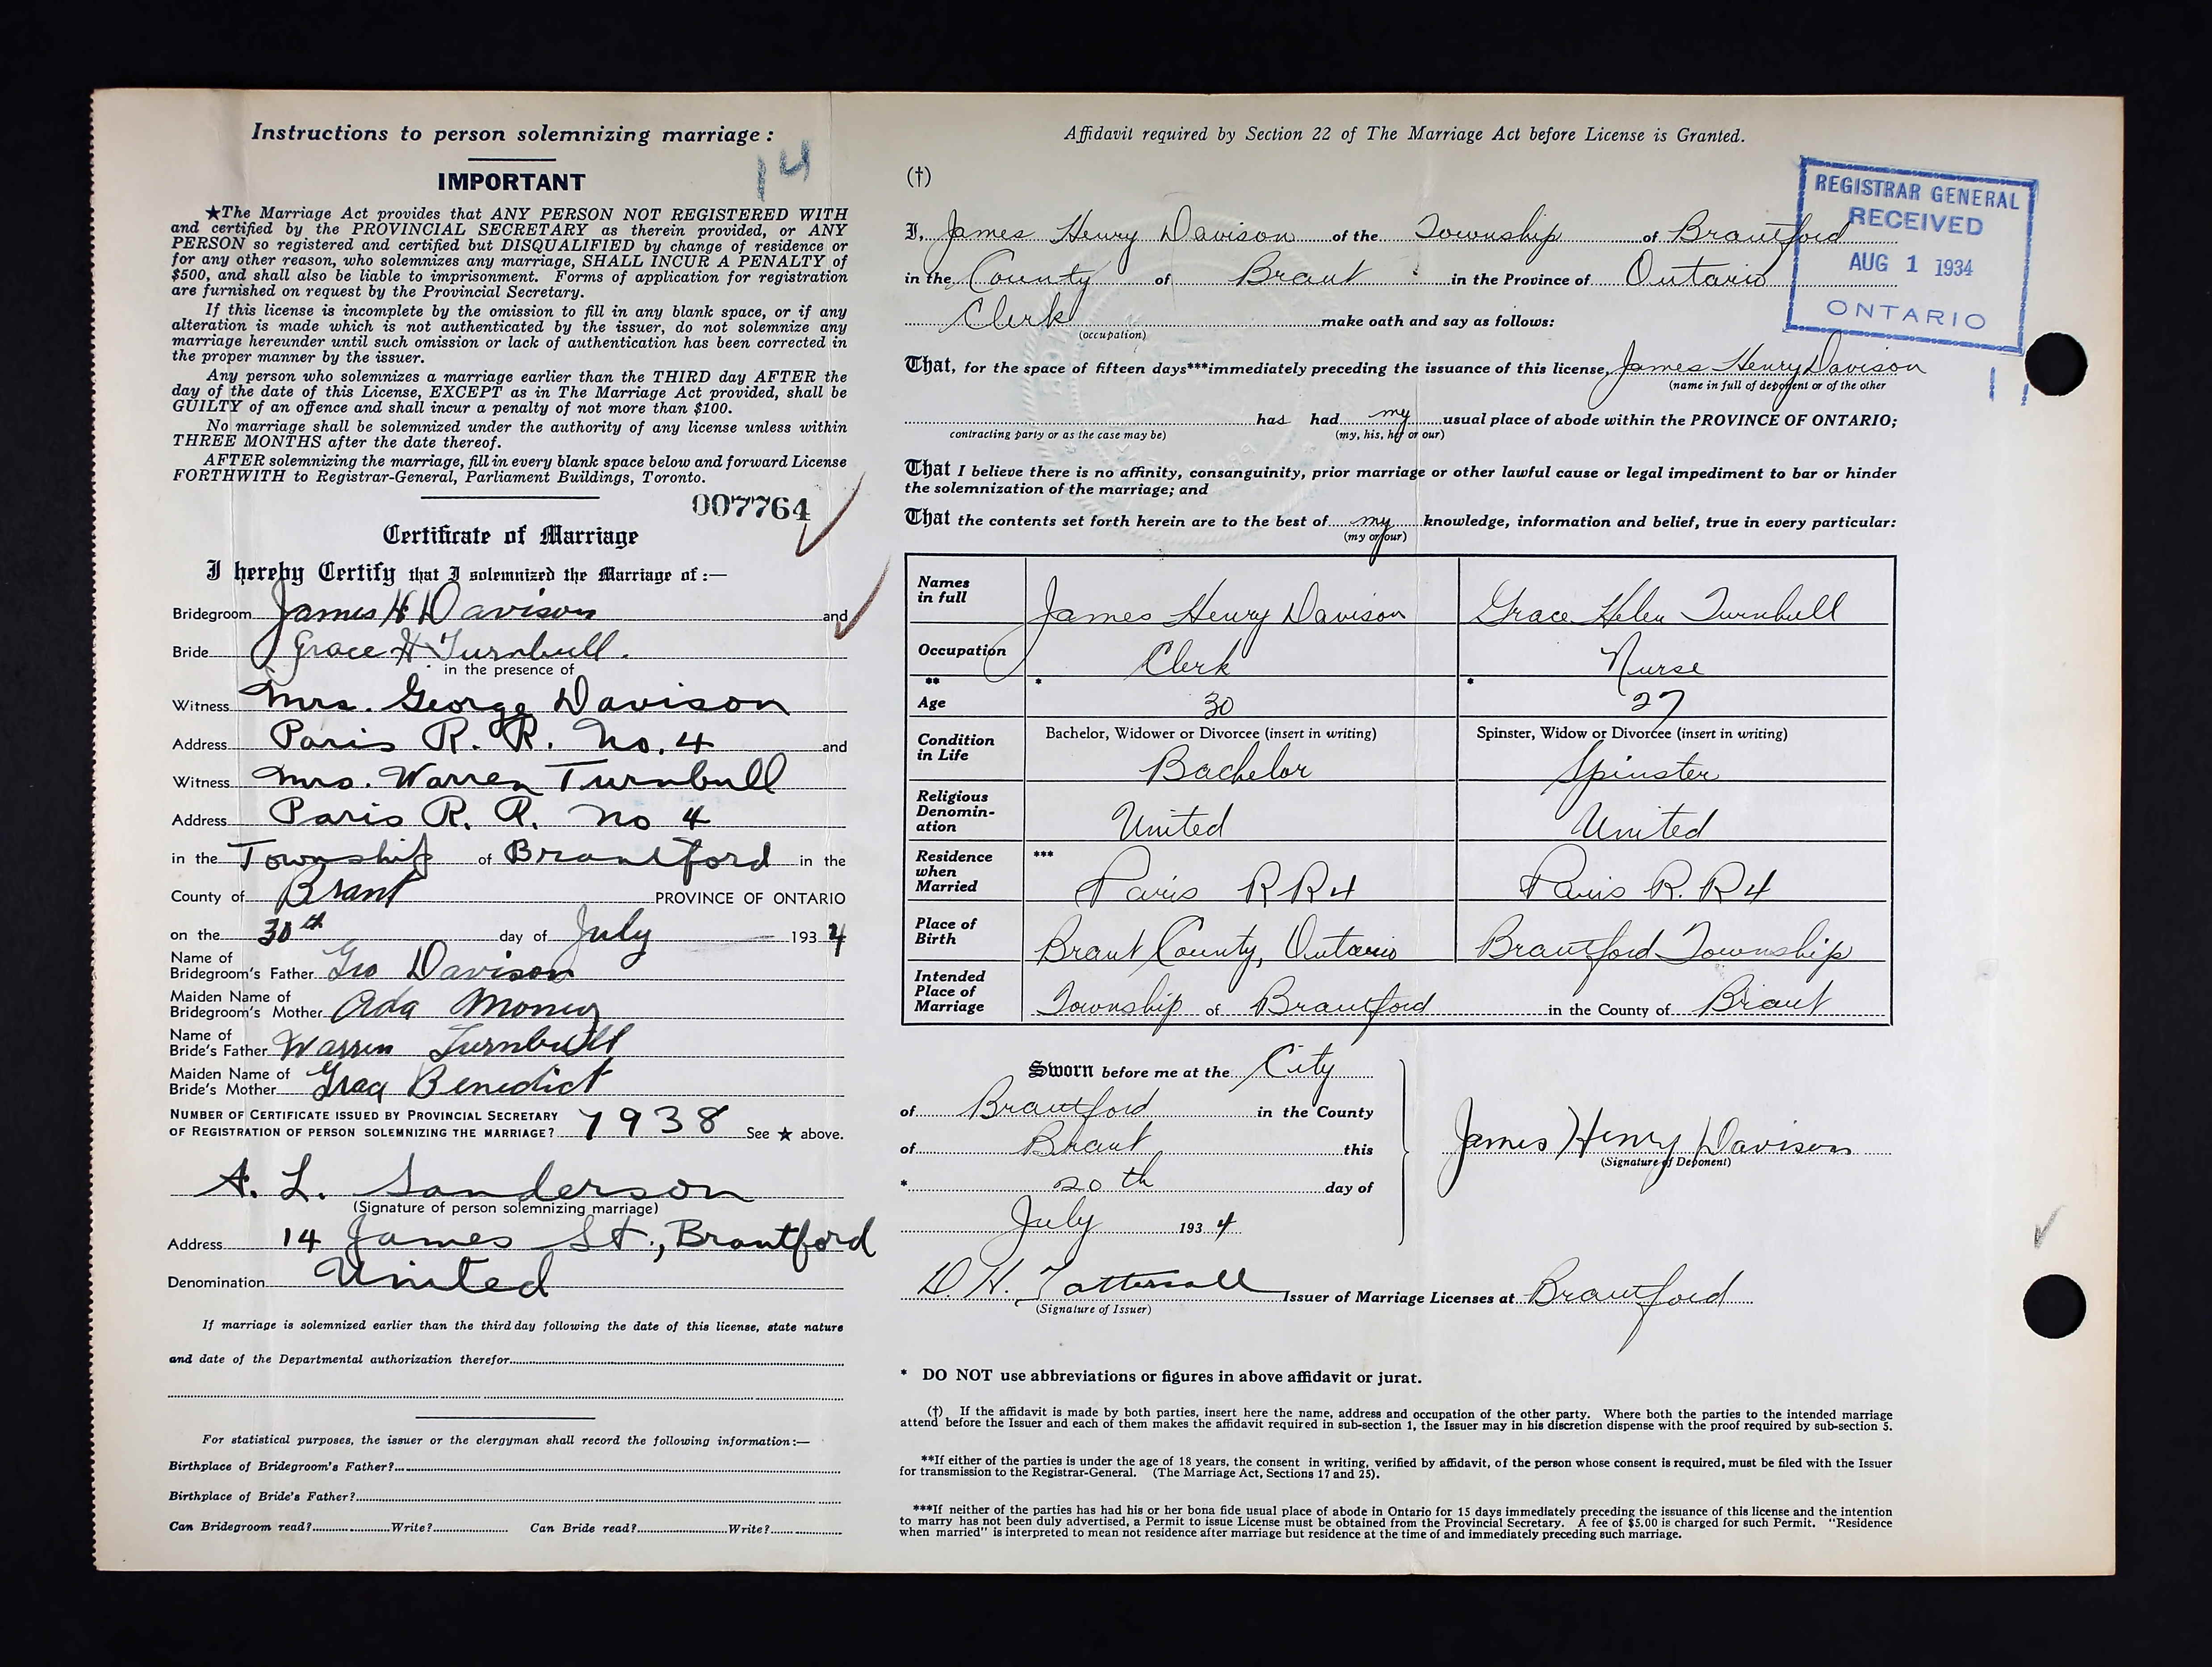 Instructions to person solemnizing marriage:
14
IMPORTANT
★The Marriage Act provides that ANY PERSON NOT REGISTERED WITH
and certified by the PROVINCIAL SECRETARY as therein provided, or ANY
PERSON so registered and certified but DISQUALIFIED by change of residence or
for any other reason, who solemnizes any marriage, SHALL INCUR A PENALTY of
$500, and shall also be liable to imprisonment. Forms of application for registration
are furnished on request by the Provincial Secretary.
If this license is incomplete by the omission to fill in any blank space, or if any
alteration is made which is not authenticated by the issuer, do not solemnize any
marriage hereunder until such omission or lack of authentication has been corrected in
the proper manner by the issuer.
Any person who solemnizes a marriage earlier than the THIRD day AFTER the
day of the date of this License, EXCEPT as in The Marriage Act provided, shall be
GUILTY of an offence and shall incur a penalty of not more than $100.
No marriage shall be solemnized under the authority of any license unless within
THREE MONTHS after the date thereof.
AFTER solemnizing the marriage, fill in every blank space below and forward License
FORTHWITH to Registrar-General, Parliament Buildings, Toronto.
007764
Certificate of Marriage
I hereby Certify that I solemnized the Marriage of:—
Bridegroom James H Davison and
Bride Grace H Turnbull.
in the presence of
Witness Mrs. George Davison
Address Paris R. R. No. 4 and
Witness Mrs. Warren Turnbull
Address Paris R. R. No 4
in the Township of Brantford in the
County of Brant PROVINCE OF ONTARIO
on the 30th day of July 1934
Name of
Bridegroom's Father Geo Davison
Maiden Name of
Bridegroom's Mother Ada
Name of
Bride's Father Warren Turnbull
Maiden Name of
Bride's Mother Benedict
NUMBER OF CERTIFICATE ISSUED BY PROVINCIAL SECRETARY
OF REGISTRATION OF PERSON SOLEMNIZING THE MARRIAGE? 7938 See ★ above.
A. L. Sanderson
(Signature of person solemnizing marriage)
Address 14 James St., Brantford
Denomination United
If marriage is solemnized earlier than the third day following the date of this license, state nature
and date of the Departmental authorization therefor
For statistical purposes, the issuer or the clergyman shall record the following information:—
Birthplace of Bridegroom's Father?
Birthplace of Bride's Father?
Can Bridegroom read? Write? Can Bride read? Write?
Affidavit required by Section 22 of The Marriage Act before License is Granted.
(†)
REGISTRAR GENERAL
RECEIVED
AUG 1 1934
ONTARIO
I, James Henry Davison of the Township of Brantford
in the County of Brant in the Province of Ontario
Clerk make oath and say as follows:
(occupation)
That, for the space of fifteen days***immediately preceding the issuance of this license, James Henry Davison
(name in full of deponent or of the other
has had my usual place of abode within the PROVINCE OF ONTARIO;
contracting party or as the case may be) (my, his, her or our)
That I believe there is no affinity, consanguinity, prior marriage or other lawful cause or legal impediment to bar or hinder
the solemnization of the marriage; and
That the contents set forth herein are to the best of my knowledge, information and belief, true in every particular:
(my or our)
Names
in full James Henry Davison Grace Helen Turnbull
Occupation Clerk Nurse
** * *
Age 30 27
Condition
in Life Bachelor, Widower or Divorcee (insert in writing) Spinster, Widow or Divorcee (insert in writing)
Bachelor Spinster
Religious
Denomin-
ation United United
Residence
when
Married *** Paris R R 4 Paris R. R 4
Place of
Birth Brant County, Ontario Brantford Township
Intended
Place of
Marriage Township of Brantford in the County of Brant
Sworn before me at the City
of Brantford in the County
of Brant this
* 20th day of
July 1934
James Henry Davison
(Signature of Deponent)
D. H. Tattersall Issuer of Marriage Licenses at Brantford
(Signature of Issuer)
* DO NOT use abbreviations or figures in above affidavit or jurat.
(†) If the affidavit is made by both parties, insert here the name, address and occupation of the other party. Where both the parties to the intended marriage
attend before the Issuer and each of them makes the affidavit required in sub-section 1, the Issuer may in his discretion dispense with the proof required by sub-section 5.
**If either of the parties is under the age of 18 years, the consent in writing, verified by affidavit, of the person whose consent is required, must be filed with the Issuer
for transmission to the Registrar-General. (The Marriage Act, Sections 17 and 25).
***If neither of the parties has had his or her bona fide usual place of abode in Ontario for 15 days immediately preceding the issuance of this license and the intention
to marry has not been duly advertised, a Permit to issue License must be obtained from the Provincial Secretary. A fee of $5.00 is charged for such Permit. "Residence
when married" is interpreted to mean not residence after marriage but residence at the time of and immediately preceding such marriage.